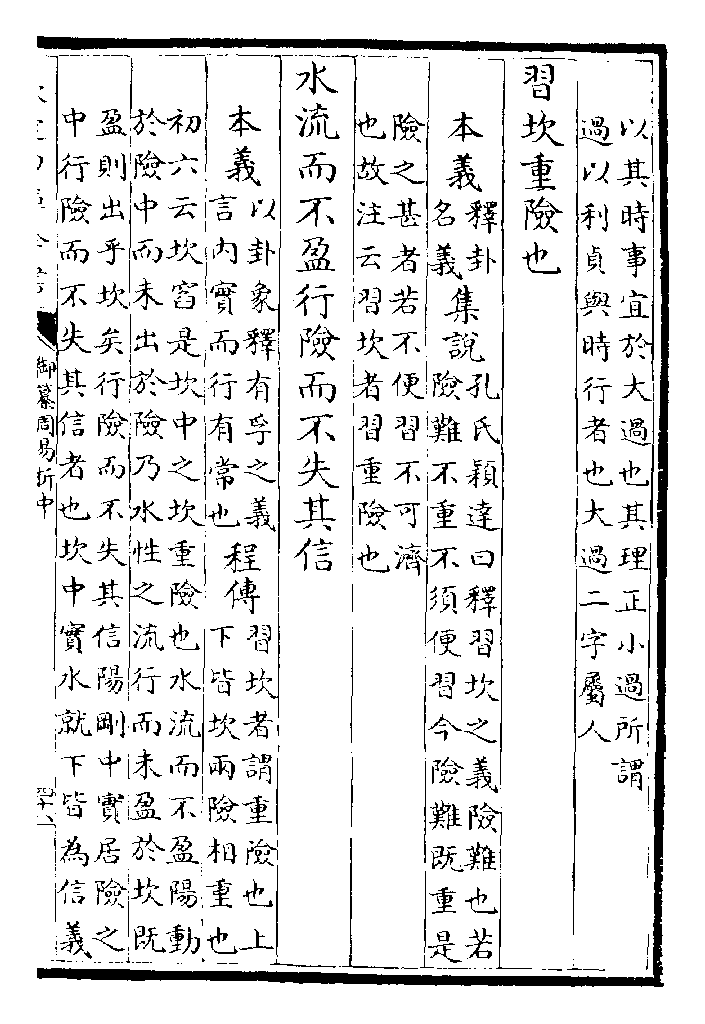 以其時事宜於大過也其理正小過所謂
過以利貞與時行者也大過二字屬人
習坎重險也
本義
釋卦
名義
集說
孔氏穎達曰釋習坎之義險難也若
險難不重不須便習今險難既重是
險之甚者若不便習不可濟
也故注云習坎者習重險也
水流而不盈行險而不失其信
本義
以卦象釋有孚之義
言内實而行有常也
程傳
習坎者謂重險也上
下皆坎兩險相重也
初六云坎窞是坎中之坎重險也水流而不盈陽動
於險中而未出於險乃水性之流行而未盈於坎既
盈則出乎坎矣行險而不失其信陽剛中實居險之
中行險而不失其信者也坎中實水就下皆為信義
御纂周易折中